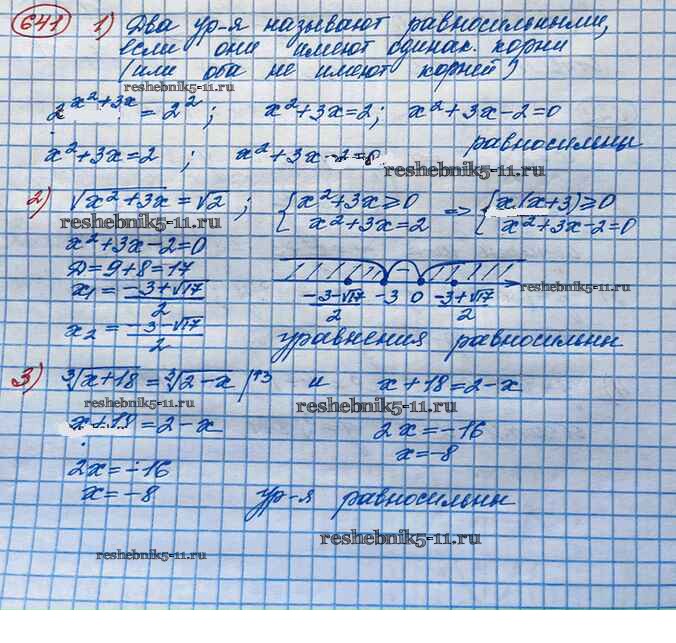 641 1) Два ур-я называют равносильными,
если они имеют одинак. корни
(или оба не имеют корней)
reshebnik5-11.ru
2^(x²+3x) = 2²; x²+3x=2; x²+3x-2=0
x²+3x=2 ; x²+3x-2=0 равносильны
reshebnik5-11.ru
2) √(x²+3x) = √2 ; { x²+3x≥0 => { x(x+3)≥0
x²+3x=2 x²+3x-2=0
reshebnik5-11.ru
x²+3x-2=0
D=9+8=17
x₁ = (-3+√17)/2
x₂ = (-3-√17)/2
(-3-√17)/2 -3 0 (-3+√17)/2
reshebnik5-11.ru
уравнения равносильны
3) ∛(x+18) = ∛(2-x) |↑3 и x+18=2-x
reshebnik5-11.ru
reshebnik5-11.ru
x+18=2-x 2x=-16
reshebnik5-11.ru
x=-8
2x=-16
x=-8 ур-я равносильны
reshebnik5-11.ru
reshebnik5-11.ru
reshebnik5-11.ru